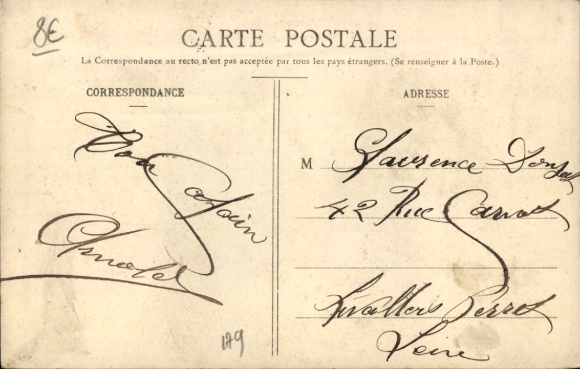 8€
CARTE POSTALE
La Correspondance au recto n'est pas acceptée par tous les pays étrangers. (Se renseigner à la Poste.)
CORRESPONDANCE
Bon
Copain
Arnold
179
ADRESSE
M Laurence
42 Rue Carnot
Levallois Perret
Seine